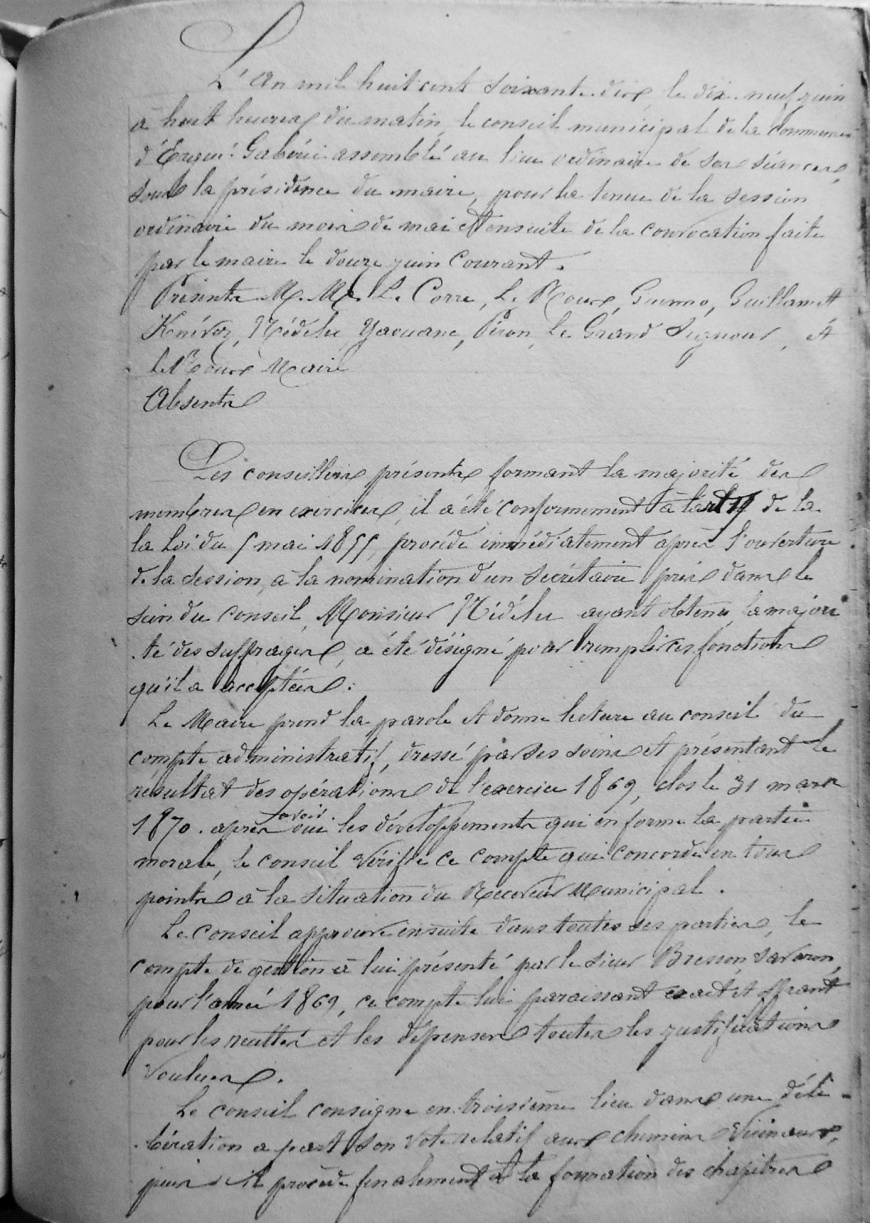 L'An mil huit cent soixante-dix, le dix-neuf juin
à huit heures du matin, le conseil municipal de la commune
d'Ergué-Gabéric assemblé au lieu ordinaire de ses séances,
sous la présidence du maire, pour la tenue de la session
ordinaire du mois de mai et ensuite de la convocation faite
par le maire le douze juin courant.
Présents M.M. Le Corre, Le Roux, Guillamet
Nédélec, Yaouanc, Piron, Le Grand, Signour, et
Le Roux Maire
Absents
Les conseillers présents formant la majorité des
membres en exercice, il a été conformément à l'art de la
la Loi du 5 mai 1855, procédé immédiatement après l'ouverture
de la session, à la nomination d'un secrétaire pris dans le
sein du conseil, Monsieur Nédélec ayant obtenu la majori
té des suffrages, a été désigné pour remplir ces fonctions
qu'il a acceptées.
Le Maire prend la parole et donne lecture au conseil du
compte administratif, dressé par ses soins et présentant le
résultat des opérations de l'exercice 1869, clos le 31 mars
1870. après avoir ouï les développements qui en forme la partie
morale, le conseil vérifie ce compte que concorde en tous
points à la situation du Receveur Municipal.
Le Conseil approuve ensuite dans toutes ses parties, le
compte de gestion à lui présenté par le sieur Bresson Savaron,
pour l'année 1869, ce compte lui paraissant exact et offrant
pour les recettes et les dépenses toutes les justifications
voulues.
Le conseil consigne en troisième lieu dans une déli-
bération a part son vote relatif aux chemins vicinaux,
puis il procède finalement à la formation des chapitres